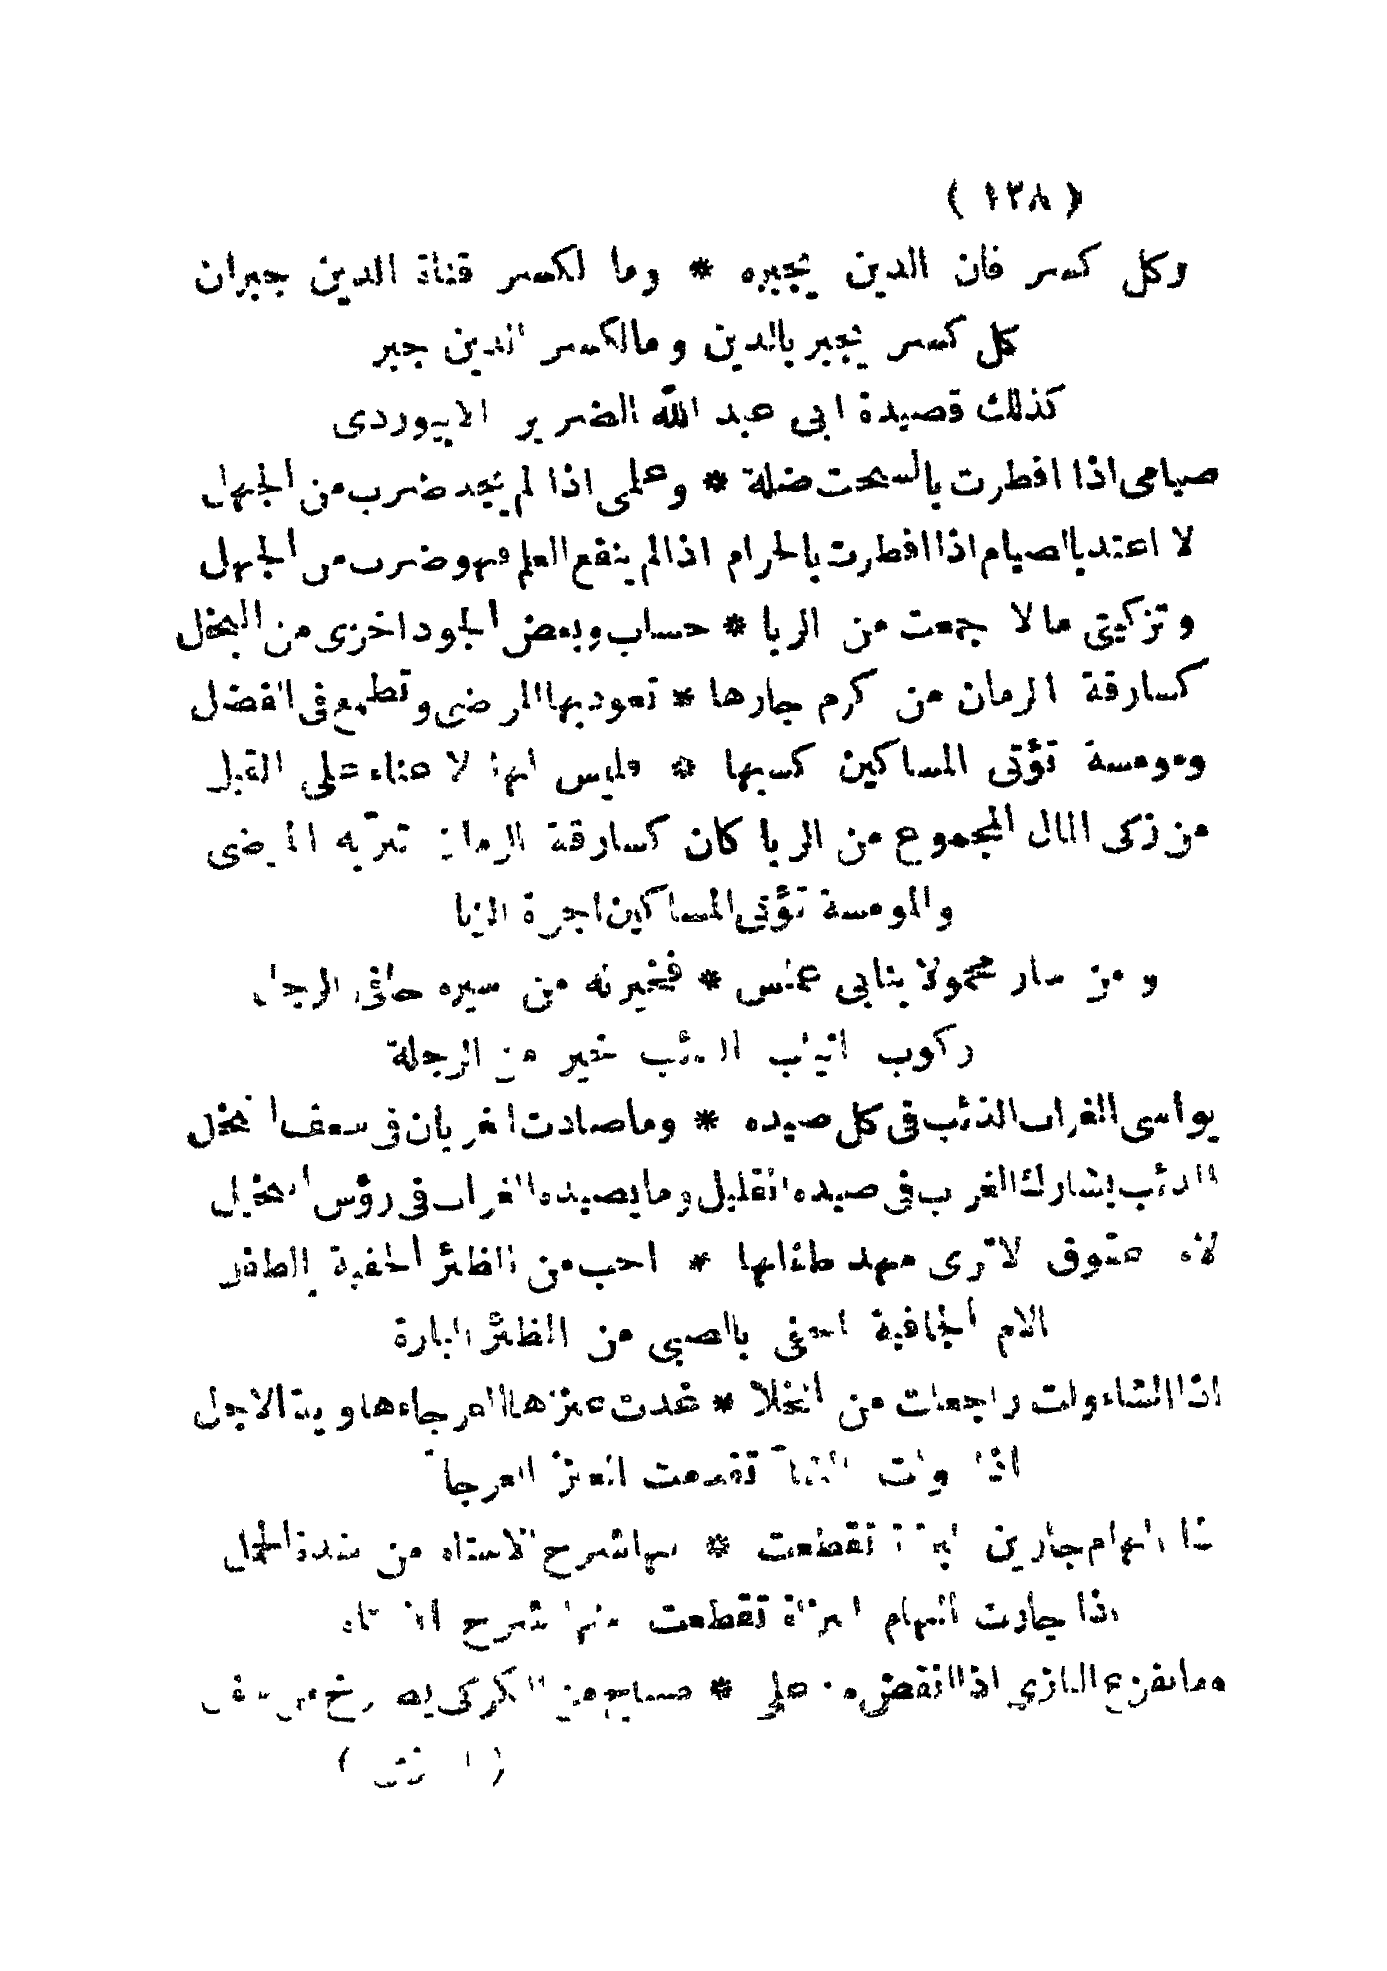 ( ١٣٨ )
وكل كسر فان الدين يجبره * وما لكسر قناة الدين جبران
كل كسر يجبر بالدين ومالكسر الدين جبر
كذلك قصيدة ابى عبد الله الضرير الابيوردى
صيامى اذا افطرت بالسحت ضلة * وعلمى اذا لم يجد ضرب من الجهل
لا اعتد بالصيام اذا افطرت بالحرام اذا لم ينفع العلم فهو ضرب من الجهل
وتزكيتى مالا جمعت من الربا * حساب وبعض الجود اخزى من البخل
كسارقة الرمان من كرم جارها * تعود بها المرضى وتطمع فى الفضل
ومومسة تؤتى المساكين كسبها * فليس لها لا عناء على القبل
من زكى المال المجموع من الربا كان كسارقة الرمان المرضى
والمومسة تؤتى المساكين اجرة الزنا
و من سار محمولا بنابى * فخير له من سيره حافى الرجل
ركوب انياب الذئب خير من الرجلة
يواسى الغراب الذئب فى كل صيده * وما صادت الغربان فى سعف النخل
الذئب يشارك الغراب فى صيده القليل وما يصيده الغراب فى رؤس النخيل
لام عقوق لا ترى مهد طفلها * احب من الظئر الحفية بالطفل
الام الجافية احفى بالصبى من الظئر البارة
اذا الشاء ولت راجعات من الخلا * غدت عنزها العرجاء هاوية الاجل
اذا ولت الشاء تقدمت العنز العرجاء
تقطعت * شرح الاستاه من شدة الحمل
اذا جارت البهام تقطعت منها شرح
وما يفزع البازى اذا انقض من على * صياح من الكركى يصرخ من